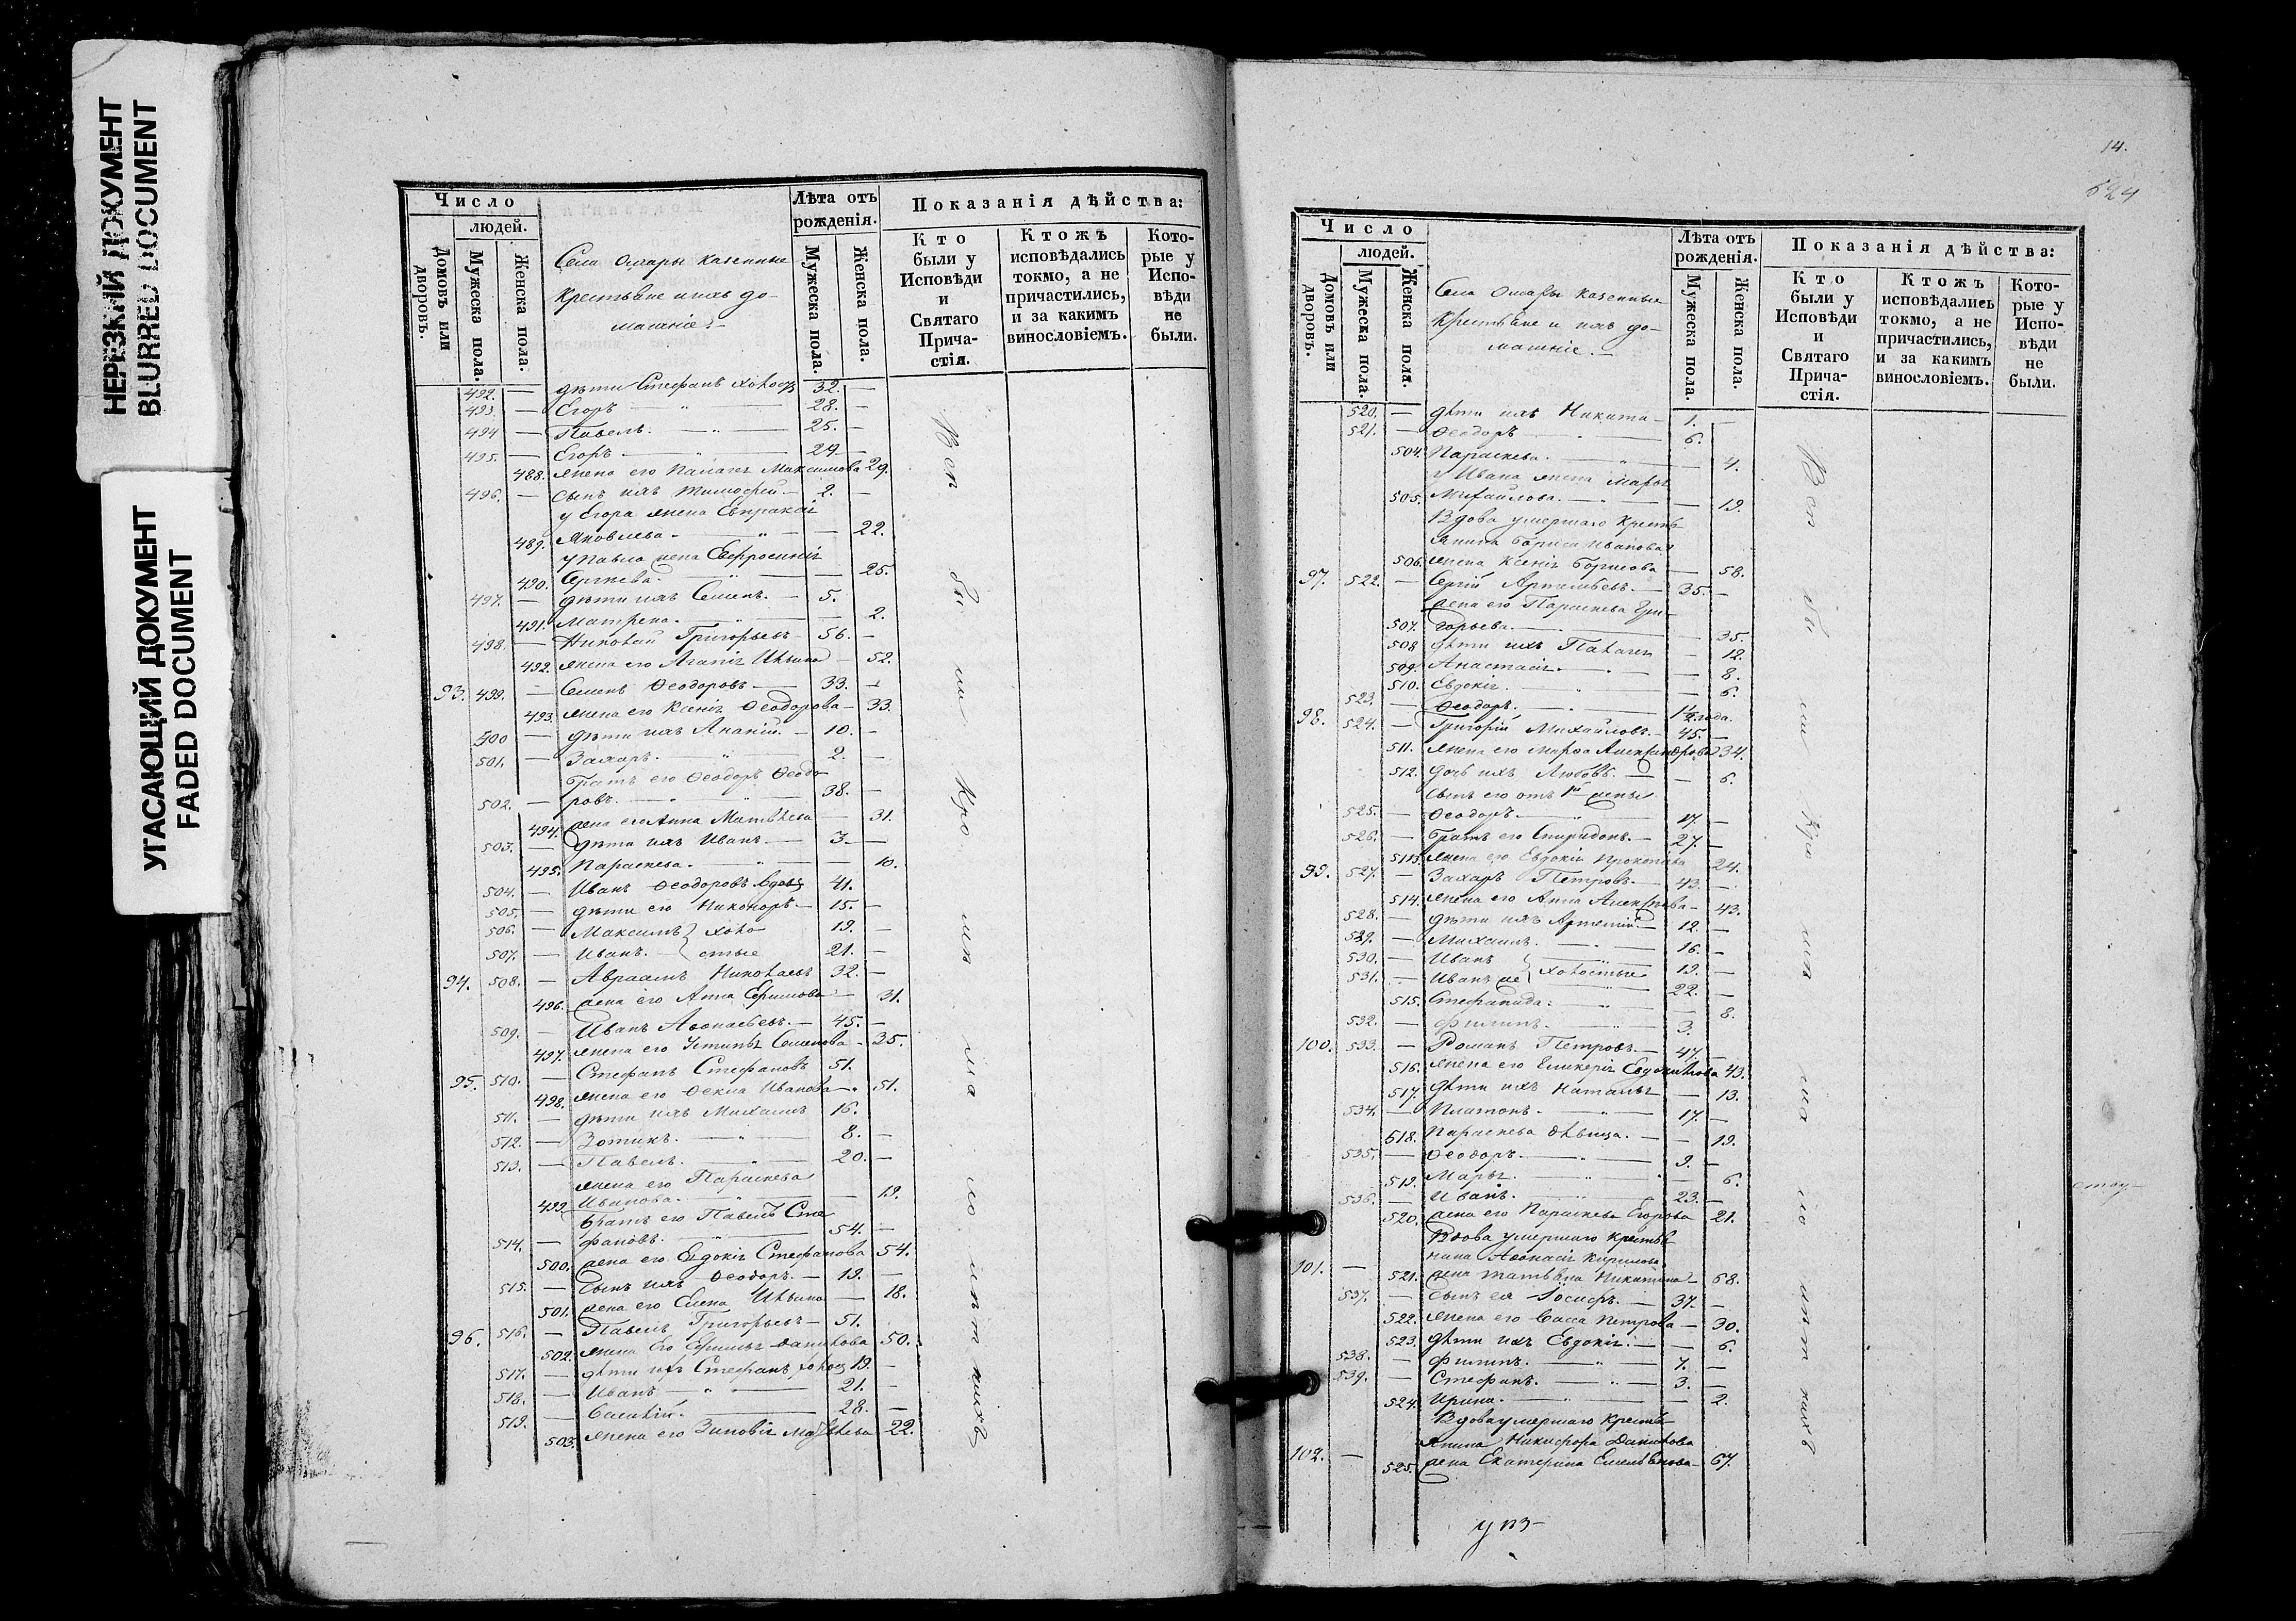 НЕРЕЗКИЙ ДОКУМЕНТ
BLURRED DOCUMENT
УГАСАЮЩИЙ ДОКУМЕНТ
FADED DOCUMENT
Число
людей.
Домовъ или дворовъ.
Мужеска пола.
Женска пола.
Села Омары казенные
Крестьяне и ихъ до-
машніе.-
Лѣта отъ рожденія.
Мужеска пола.
Женска пола.
Показанія дѣйства:
Кто были у Исповѣди и Святаго Прича-стія.
Ктожъ исповѣдались токмо, а не причастились, и за какимъ винословіемъ.
Кото-рые у Испо-вѣди не были.
492. — дѣти Стефанъ холос 32. —
493. — Егоръ — " — 28. —
494 — Павелъ. — " — 25. —
495. — Егоръ — 29. —
488. жена его Палагея Максимова 29.
496. — сынъ ихъ Тимофей. — 2. —
у Егора жена Евпраксія
489. Яковлева. — " — — 22.
у Павла жена Евфросинія
490. Сергѣева. — " — — 25.
497. — дѣти ихъ Семенъ. — 5.
491. Матрена. — " — — 2.
498. — Николай Григорьевъ — 56. —
492. жена его Агапія Ильина — 52.
93. 499. — Семенъ Ѳеодоровъ — 33. —
493. жена его Ксенія Ѳеодорова — 33.
500 — дѣти ихъ Ананій. — 10. —
501. — Захаръ. — " — 2. —
Братъ его Ѳеодоръ Ѳеодо
502. — ровъ. — " — 38. —
494. жена его Анна Матвѣева — 31.
503. — дѣти ихъ Иванъ. — 3. —
495. Параскева. — " — — 10.
504. — Иванъ Ѳеодоровъ вдовъ 41.
505. — дѣти его Никоноръ. — 15. —
506. — Максимъ } холо 19. —
507. — Иванъ. — } стые 21. —
94. 508. — Авраамъ Николаевъ 32. —
496. жена его Анна Ефимова — 31.
509. — Иванъ Аѳонасьевъ. — 45. —
497. жена его Устинья Семенова — 35.
95. 510. — Стефанъ Стефановъ 51.
498. жена его Ѳекла Иванова — 51.
511. — дѣти ихъ Михаилъ 16.
512. — Зотикъ. — " — 8. —
513. — Павелъ. — " — 20. —
жена его Параскева
499. Иванова. — " — — 19.
братъ его Павелъ Сте
514. — фановъ. — " — 54. —
500. жена его Евдокія Стефанова 54.
515. — Сынъ ихъ Ѳеодоръ. — 19. —
501. жена его Елена Ильина — 18.
96. 516. — Павелъ Григорьевъ — 51.
502. жена Его Ефимья Данилова 50.
517. — дѣти ихъ Стефанъ холос 19. —
518. — Иванъ — " — 21. —
519. — Василій. — 28. —
503. жена его Зиновія Матвѣева — 22.
Всѣ были кромѣ малолѣтнихъ
14.
624
Число
людей.
Домовъ или дворовъ.
Мужеска пола.
Женска пола.
Села Омары казенные
Крестьяне и ихъ до-
машніе.-
Лѣта отъ рожденія.
Мужеска пола.
Женска пола.
Показанія дѣйства:
Кто были у Исповѣди и Святаго Прича-стія.
Ктожъ исповѣдались токмо, а не причастились, и за какимъ винословіемъ.
Кото-рые у Испо-вѣди не были.
520. — дѣти ихъ Никита — 1. —
521. — Ѳеодоръ — " — 6.
504. Параскева. — " — — 4.
у Ивана жена Марья
505. Михайлова. — " — — 19.
Вдова умершаго Кресть
янина Бориса Иванова
506. жена Ксенія Борисова — 58.
97. 522. — Сергій Артемьевъ. — 35. —
жена его Параскева Гри-
507. горьева. — 35.
508 дѣти ихъ Палагея — 12.
509. Анастасія. — " — — 8.
510. Евдокія. — " — — 6.
523. — Ѳеодоръ. — " — 1½ года.
98. 524. — Григорій Михайловъ. — 45. —
511. жена его Марѳа Александрова 34.
512. дочь ихъ Любовь. — — 6.
Сынъ его отъ 1й жены
525. — Ѳеодоръ. — " — 17. —
526. — братъ его Спиридонъ. — 27. —
513. жена его Евдокія Прокопіева 24.
99. 527. — Захаръ Петровъ. — 43. —
514. жена его Анна Алексѣева — 43.
528. — дѣти ихъ Артемій — 12. —
529. — Михаилъ. — " — 16. —
530. — Иванъ } — 19. —
531. — Иванъ же } холостые 22. —
515. Стефанида. — " — — 8.
532. — Филипъ. — " — 3.
100. 533. — Романъ Петровъ. — 47. —
516. жена его Гликерія Евдокимова 43.
517. дѣти ихъ Наталья — 13.
534. — Платонъ. — " — 17. —
518. Параскева дѣвица. — — 19.
535. — Ѳеодоръ. — " — 9. —
519. Марья. — " — 6.
536. — Иванъ. — 23. —
520. жена его Параскева Егорова 21.
Вдова умершаго крестья
нина Аѳонасія Кирилова
101. — 521. жена Татьяна Никитина — 68.
537. — Сынъ ея Іосифъ. — 37. —
522. жена его Васса Петрова — 30.
523. дѣти ихъ Евдокія. — — 6.
538. — Филипъ. — " — 7. —
539. — Стефанъ. — " — 3. —
524. Ирина. — " — — 2.
Вдова умершаго Кресть
янина Никифора Данилова
102. — 525. жена Екатерина Емельянова — 67.
Всѣ были кромѣ малолѣтнихъ